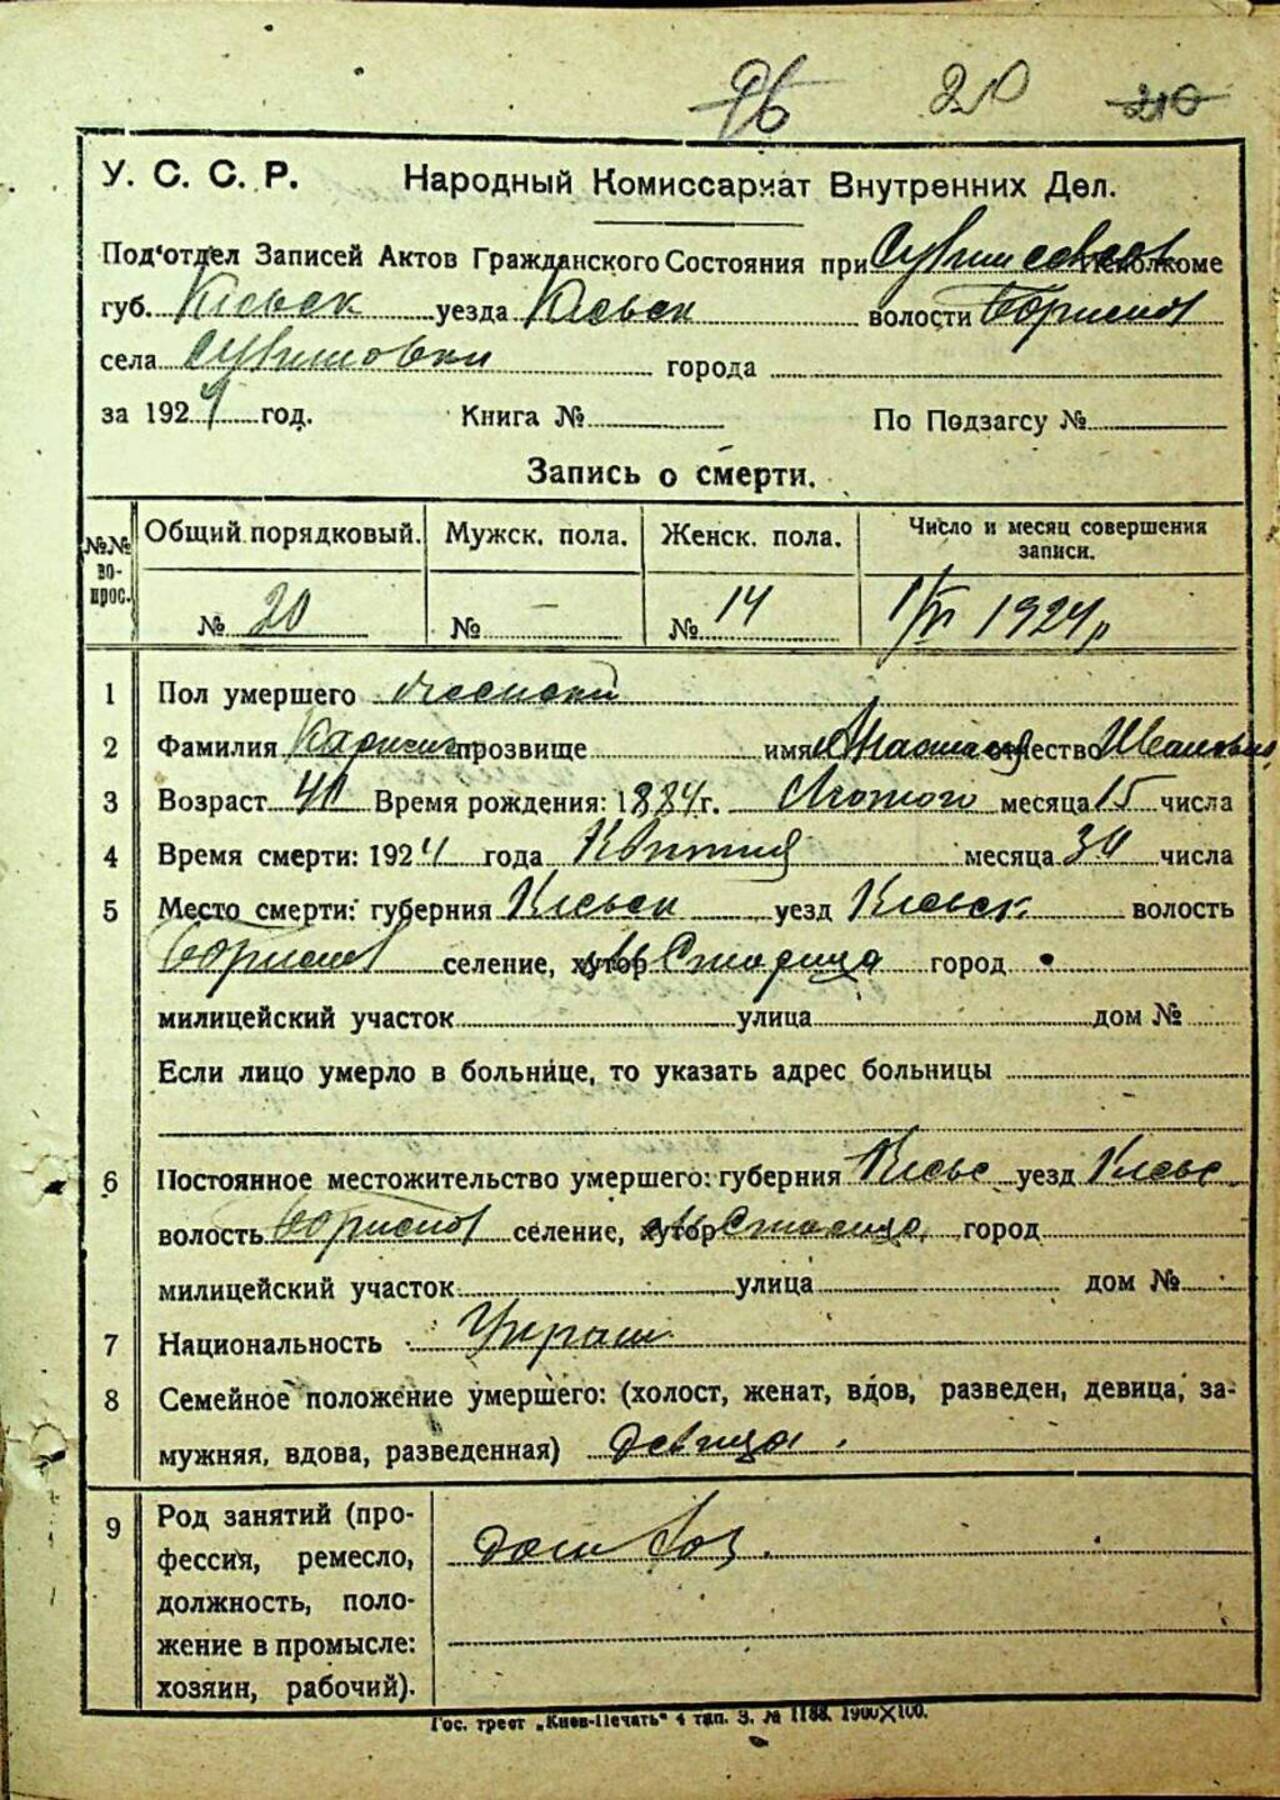 96 20 210
У. С. С. Р. Народный Комиссариат Внутренних Дел.
Под'отдел Записей Актов Гражданского Состояния при Исполкоме
губ. Киевск уезда Киевск волости Бориспол
села города
за 1924 год. Книга № По Подзагсу №
Запись о смерти.
№№ во- прос. Общий порядковый. Мужск. пола. Женск. пола. Число и месяц совершения записи.
№ 20 № — № 14 1/VI 1924 р
1 Пол умершего женский
2 Фамилия прозвище имя отчество
3 Возраст 40 Время рождения: 1884 г. Лютого месяца 15 числа
4 Время смерти: 1924 года Квітня месяца 30 числа
5 Место смерти: губерния Киевск уезд Киевск волость
Бориспол селение, хутор Старица город
милицейский участок улица дом №
Если лицо умерло в больнице, то указать адрес больницы
6 Постоянное местожительство умершего: губерния Киевс уезд Киевс
волость Бориспол селение, хутор Старица город
милицейский участок улица дом №
7 Национальность Украин
8 Семейное положение умершего: (холост, женат, вдов, разведен, девица, за-
мужняя, вдова, разведенная) девица.
9 Род занятий (про-
фессия, ремесло,
должность, поло-
жение в промысле:
хозяин, рабочий).
Гос. трест „Киев-Печать“ 4 тип. З. № 1188. 1900×100.